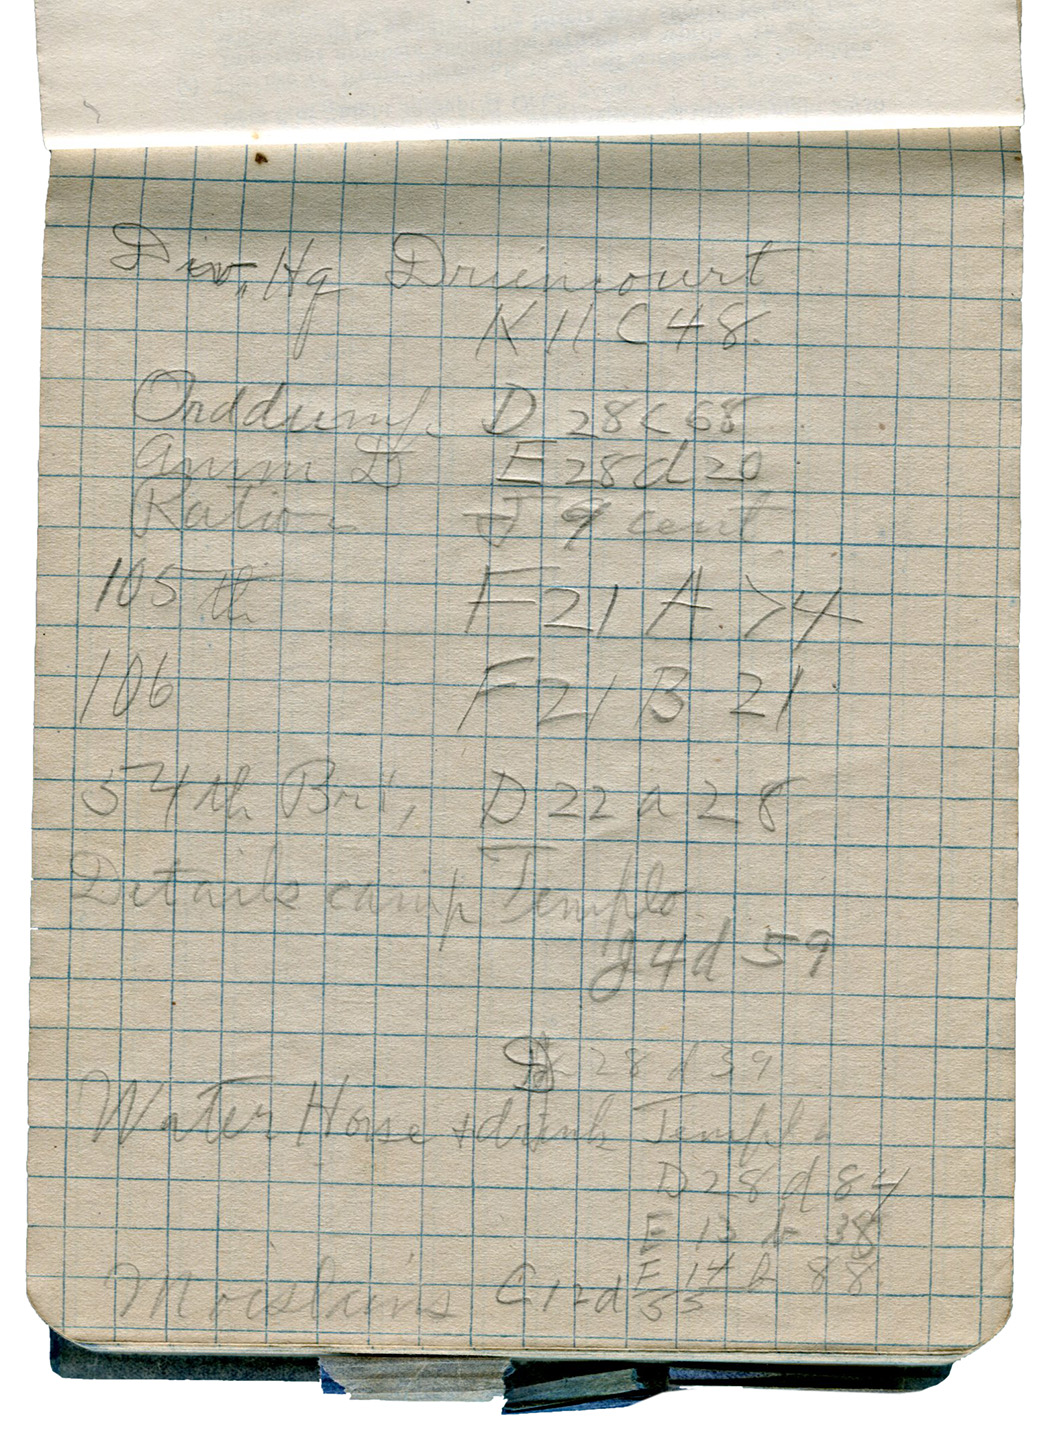 Div. Hq Driencourt
K 11 C 48.
Orddump D 28 c 68
Amm D E 28 d 20
Ration J 9 cent
105th F 21 A 74
106 F 21 B 21
54th Bri, D 22 a 28
Details camp Templo
J 4 d 59
D 28 d 39
Water Horse + drink Templo
D 28 d 84
E 13 b 38
E 14 b 88
Moislains C 12 d 55